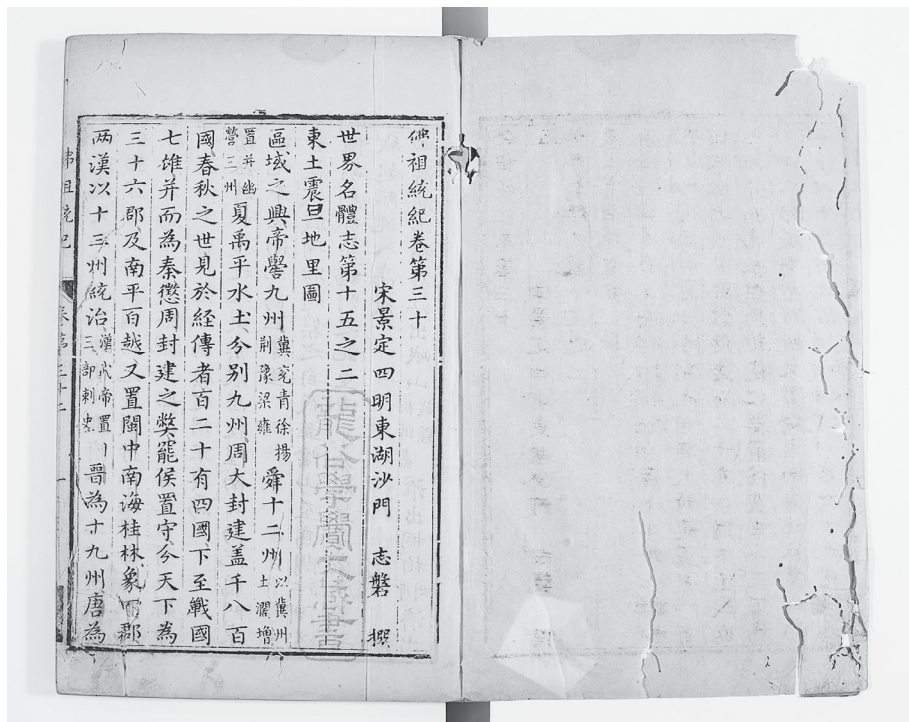 佛祖統紀卷第三十
宋景定四明東湖沙門 志磐 撰
世界名體志第十五之二
東土震旦地里圖
區域之興帝嚳九州冀兖青徐揚荆豫梁雍舜十二州以冀州土濶增
置并幽營三州夏禹平水土分別九州周大封建盖千八百
國春秋之世見於経傳者百二十有四國下至戰國
七雄并而為秦懲周封建之獘罷侯置守分天下為
三十六郡及南平百越又置閩中南海桂林象郡
两漢以十三州統治漢武帝置三部刺史晉為十九州唐為